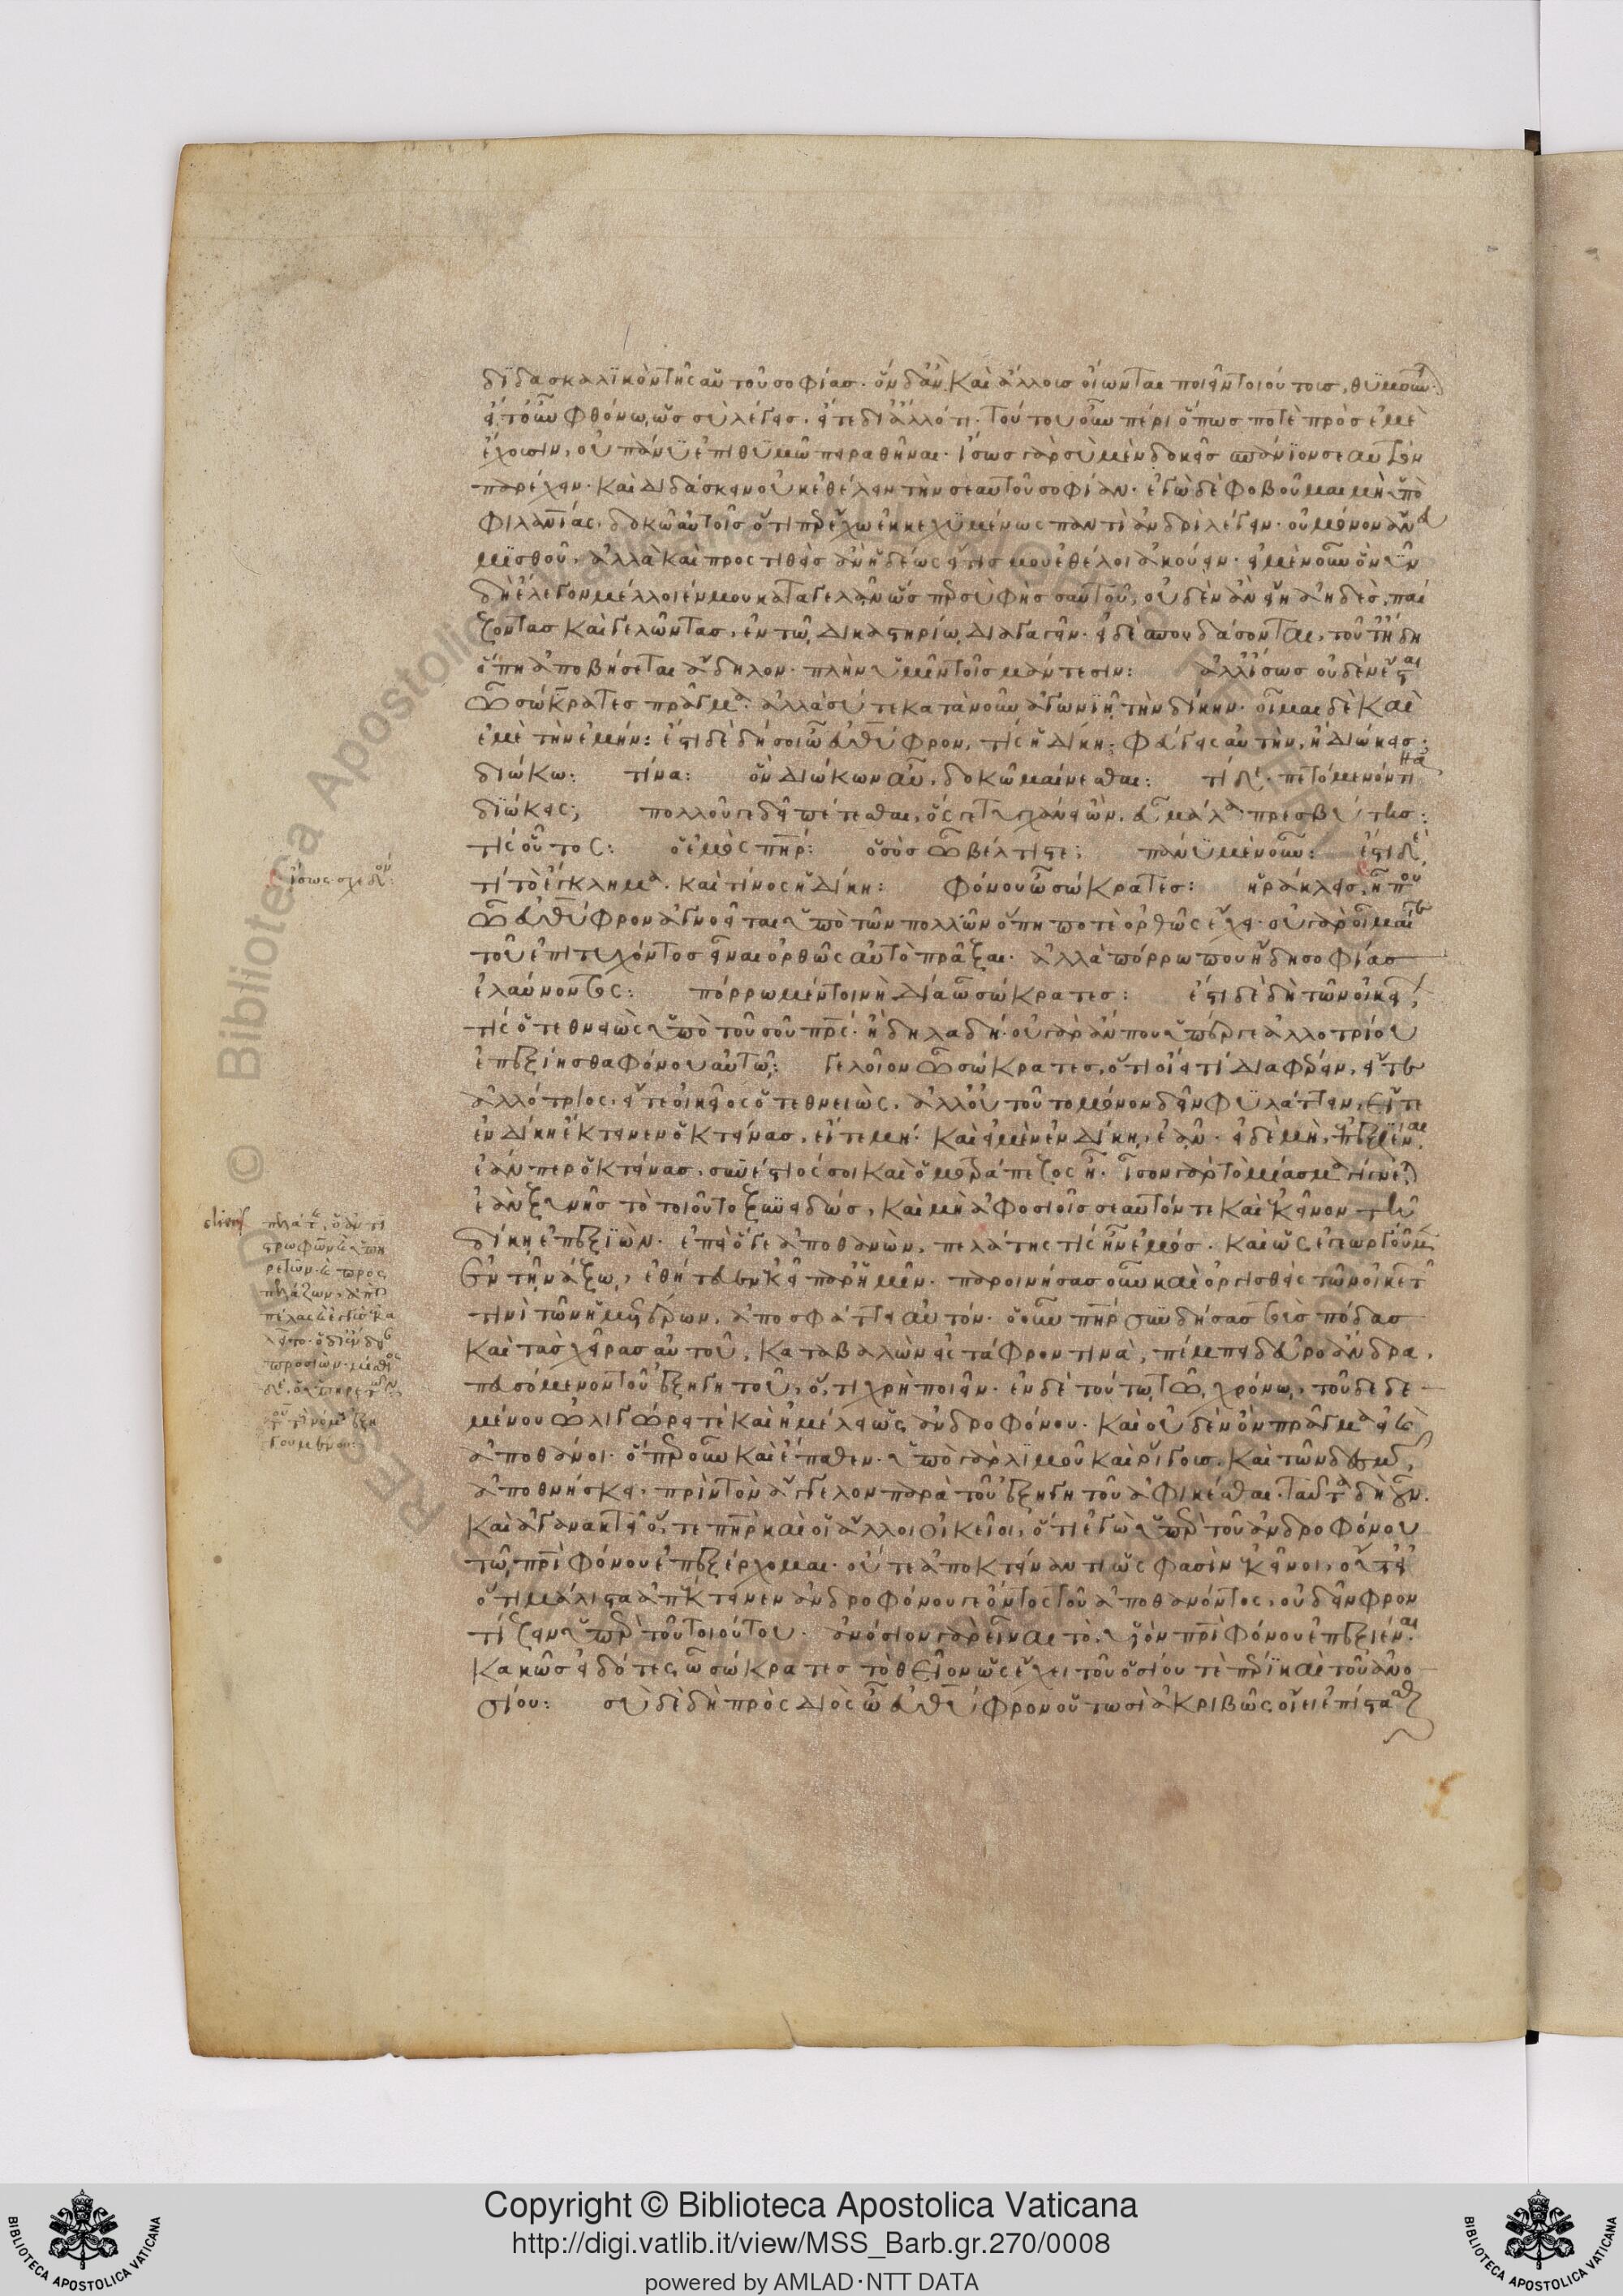 διδασκαλικὸν τῆς αὑτοῦ σοφίας. ὃν δ' ἂν καὶ ἄλλους οἴωνται ποιεῖν τοιούτους, θυμοῦνται
εἴτ' οὖν φθόνω, ὡς σὺ λέγεις. εἴτε δι' ἄλλό τι. τούτου οὖν πέρι ὅπως ποτὲ πρὸς ἐμὲ
ἔχουσιν, οὐ πάνυ ἐπιθυμῶ πειραθῆναι. ἴσως γὰρ σὺ μὲν δοκεῖς σπάνιον σεαυτὸν
παρέχειν. καὶ διδάσκειν οὐκ ἐθέλειν τὴν σεαυτοῦ σοφίαν. ἐγὼ δὲ φοβοῦμαι μὴ ὑπὸ
φιλανίας. δοκῶ αὐτοῖς ὅτι περ ἔχω ἐκκεχυμένως παντὶ ἀνδρὶ λέγειν. οὐ μόνον ἄνευ
μισθοῦ, ἀλλὰ καὶ προστιθεὶς ἂν ἡδέως εἴ τις μου ἐθέλοι ἀκούειν. εἰ μὲν οὖν ὃ νῦν
δὴ ἔλεγον μέλλοιέν μου καταγελᾶν ὥσπερ σὺ φῂς σαυτοῦ, οὐδὲν ἂν εἴη ἀηδὲς, παί
ζοντας καὶ γελῶντας, ἐν τῶ δικαστηρίω διαγαγεῖν. εἰ δὲ σπουδάσονται, τοῦτ' ἤδη
ὅπη ἀποβήσεται ἄδηλον. πλὴν ὑμῖν τοῖς μάντεσιν: ἀλλ' ἴσως οὐδὲν ἔσται
ὦ σώκρατες πρᾶγμα. ἀλλὰ σύ τε κατὰ νοῦν ἀγωνιῆ τὴν δίκην. οἶμαι δὲ καὶ
ἐμὲ τὴν ἐμήν: ἔστι δὲ δή σοι ὦ εὐθύφρον, τίς ἡ δίκη; φεύγεις αὐτὴν, ἢ διώκεις;
διώκω: τίνα: ὃν διώκων αὖ, δοκῶ μαίνεσθαι: τί δέ. πετόμενόν τινα
διώκεις; πολλοῦ γε δεῖ πέτεσθαι, ὅς γε τυγχάνει ὢν, εὖ μάλα πρεσβύτης:
τίς οὗτος: ὁ ἐμὸς πατήρ: ὁ σὸς ὦ βέλτιστε; πάνυ μὲν οὖν: ἔστι δὲ
ἴσως σχεδόν:
τί τὸ ἔγκλημα. καὶ τίνος ἡ δίκη: φόνου ὦ σώκρατες: ἡράκλεις, ἦ που
ὦ εὐθύφρον ἀγνοεῖται ὑπὸ τῶν πολλῶν ὅπη ποτὲ ὀρθῶς ἔχει. οὐ γὰρ οἶμαί γε
τοῦ ἐπιτυχόντος εἶναι ὀρθῶς αὐτὸ πρᾶξαι. ἀλλὰ πόρρω που ἤδη σοφίας
ἐλαύνοντος: πόρρω μέντοι νὴ δία ὦ σώκρατες: ἔστι δὲ δὴ τῶν οἰκείων
τίς ὁ τεθνεὼς ὑπὸ τοῦ σοῦ πατρός. ἢ δηλαδή. οὐ γὰρ ἄν που ὑπέρ γε ἀλλοτρίου
ἐπεξίῃσθα φόνου αὐτῶ; γελοῖον ὦ σώκρατες, ὅτι οἴει τί διαφέρειν, εἴτε
ἀλλότριος. εἴτε οἰκεῖος ὁ τεθνειὼς. ἀλλ' οὐ τοῦτο μόνον δεῖν φυλάττειν, εἴτε
ἐν δίκη ἔκτεινεν ὁ κτείνας, εἴτε μή. καὶ εἰ μὲν ἐν δίκη, ἐᾶν. εἰ δὲ μὴ, ἐπεξιέναι
ἐάν περ ὁ κτείνας, συνέστιός σοι καὶ ὁμοτράπεζος ἦ. ἴσον γὰρ τὸ μίασμα γίγνεται
ἐὰν ξυνῇς τὸ τοιοῦτο ξυνειδὼς, καὶ μὴ ἀφοσιοῖς σεαυτόν τε καὶ ἐκεῖνον τῆ
δίκη ἐπεξιὼν. ἐπεὶ ὅ γε ἀποθανὼν, πελάτης τίς ἦν ἐμός. καὶ ὡς ἐγεωργοῦμεν
ἐν τῆ νάξω, ἐθήτευεν ἐκεῖ παρ' ἡμῖν. παροινήσας οὖν καὶ ὀργισθεὶς τῶν οἰκετῶν
τινὶ τῶν ἡμετέρων, ἀποσφάττει αὐτόν. ὁ οὖν πατὴρ συνδήσας τοὺς πόδας
καὶ τὰς χεῖρας αὐτοῦ, καταβαλὼν εἰς τάφρον τινὰ, πέμπει δεῦρο ἄνδρα,
πευσόμενον τοῦ ἐξηγητοῦ, ὅ, τι χρὴ ποιεῖν. ἐν δὲ τούτω τῶ χρόνω, τοῦ δεδε
μένου ὠλιγώρει τὲ καὶ ἠμέλει ὡς ἀνδροφόνου. καὶ οὐδὲν ὂν πρᾶγμα εἰ καὶ
ἀποθάνοι. ὅπερ οὖν καὶ ἔπαθεν. ὑπὸ γὰρ λιμοῦ καὶ ῥίγους, καὶ τῶν δεσμῶν,
ἀποθνήσκει. πρὶν τὸν ἄγγελον παρὰ τοῦ ἐξηγητοῦ ἀφικέσθαι. ταῦτα δὴ οὖν.
καὶ ἀγανακτεῖ ὅ, τε πατὴρ καὶ οἱ ἄλλοι οἰκεῖοι, ὅτι ἐγὼ ὑπὲρ τοῦ ἀνδροφόνου
τῶ πατρὶ φόνου ἐπεξέρχομαι. οὔτε ἀποκτείναντι ὥς φασὶν ἐκεῖνοι, οὔτ' εἰ
ὅτι μάλιστα ἀπέκτεινεν ἀνδροφόνου γε ὄντος τοῦ ἀποθανόντος, οὐ δεῖν φρον
τίζειν ὑπὲρ τοῦ τοιούτου. ἀνόσιον γὰρ εἶναι τὸ, υἱὸν πατρὶ φόνου ἐπεξιέναι.
κακῶς εἰδότες, ὦ σώκρατες τὸ θεῖον ὡς ἔχει τοῦ ὁσίου τὲ πέρι καὶ τοῦ ἀνο
σίου: σὺ δὲ δὴ πρὸς διὸς ὦ εὐθύφρον οὑτωσὶ ἀκριβῶς οἴει ἐπίστασθαι